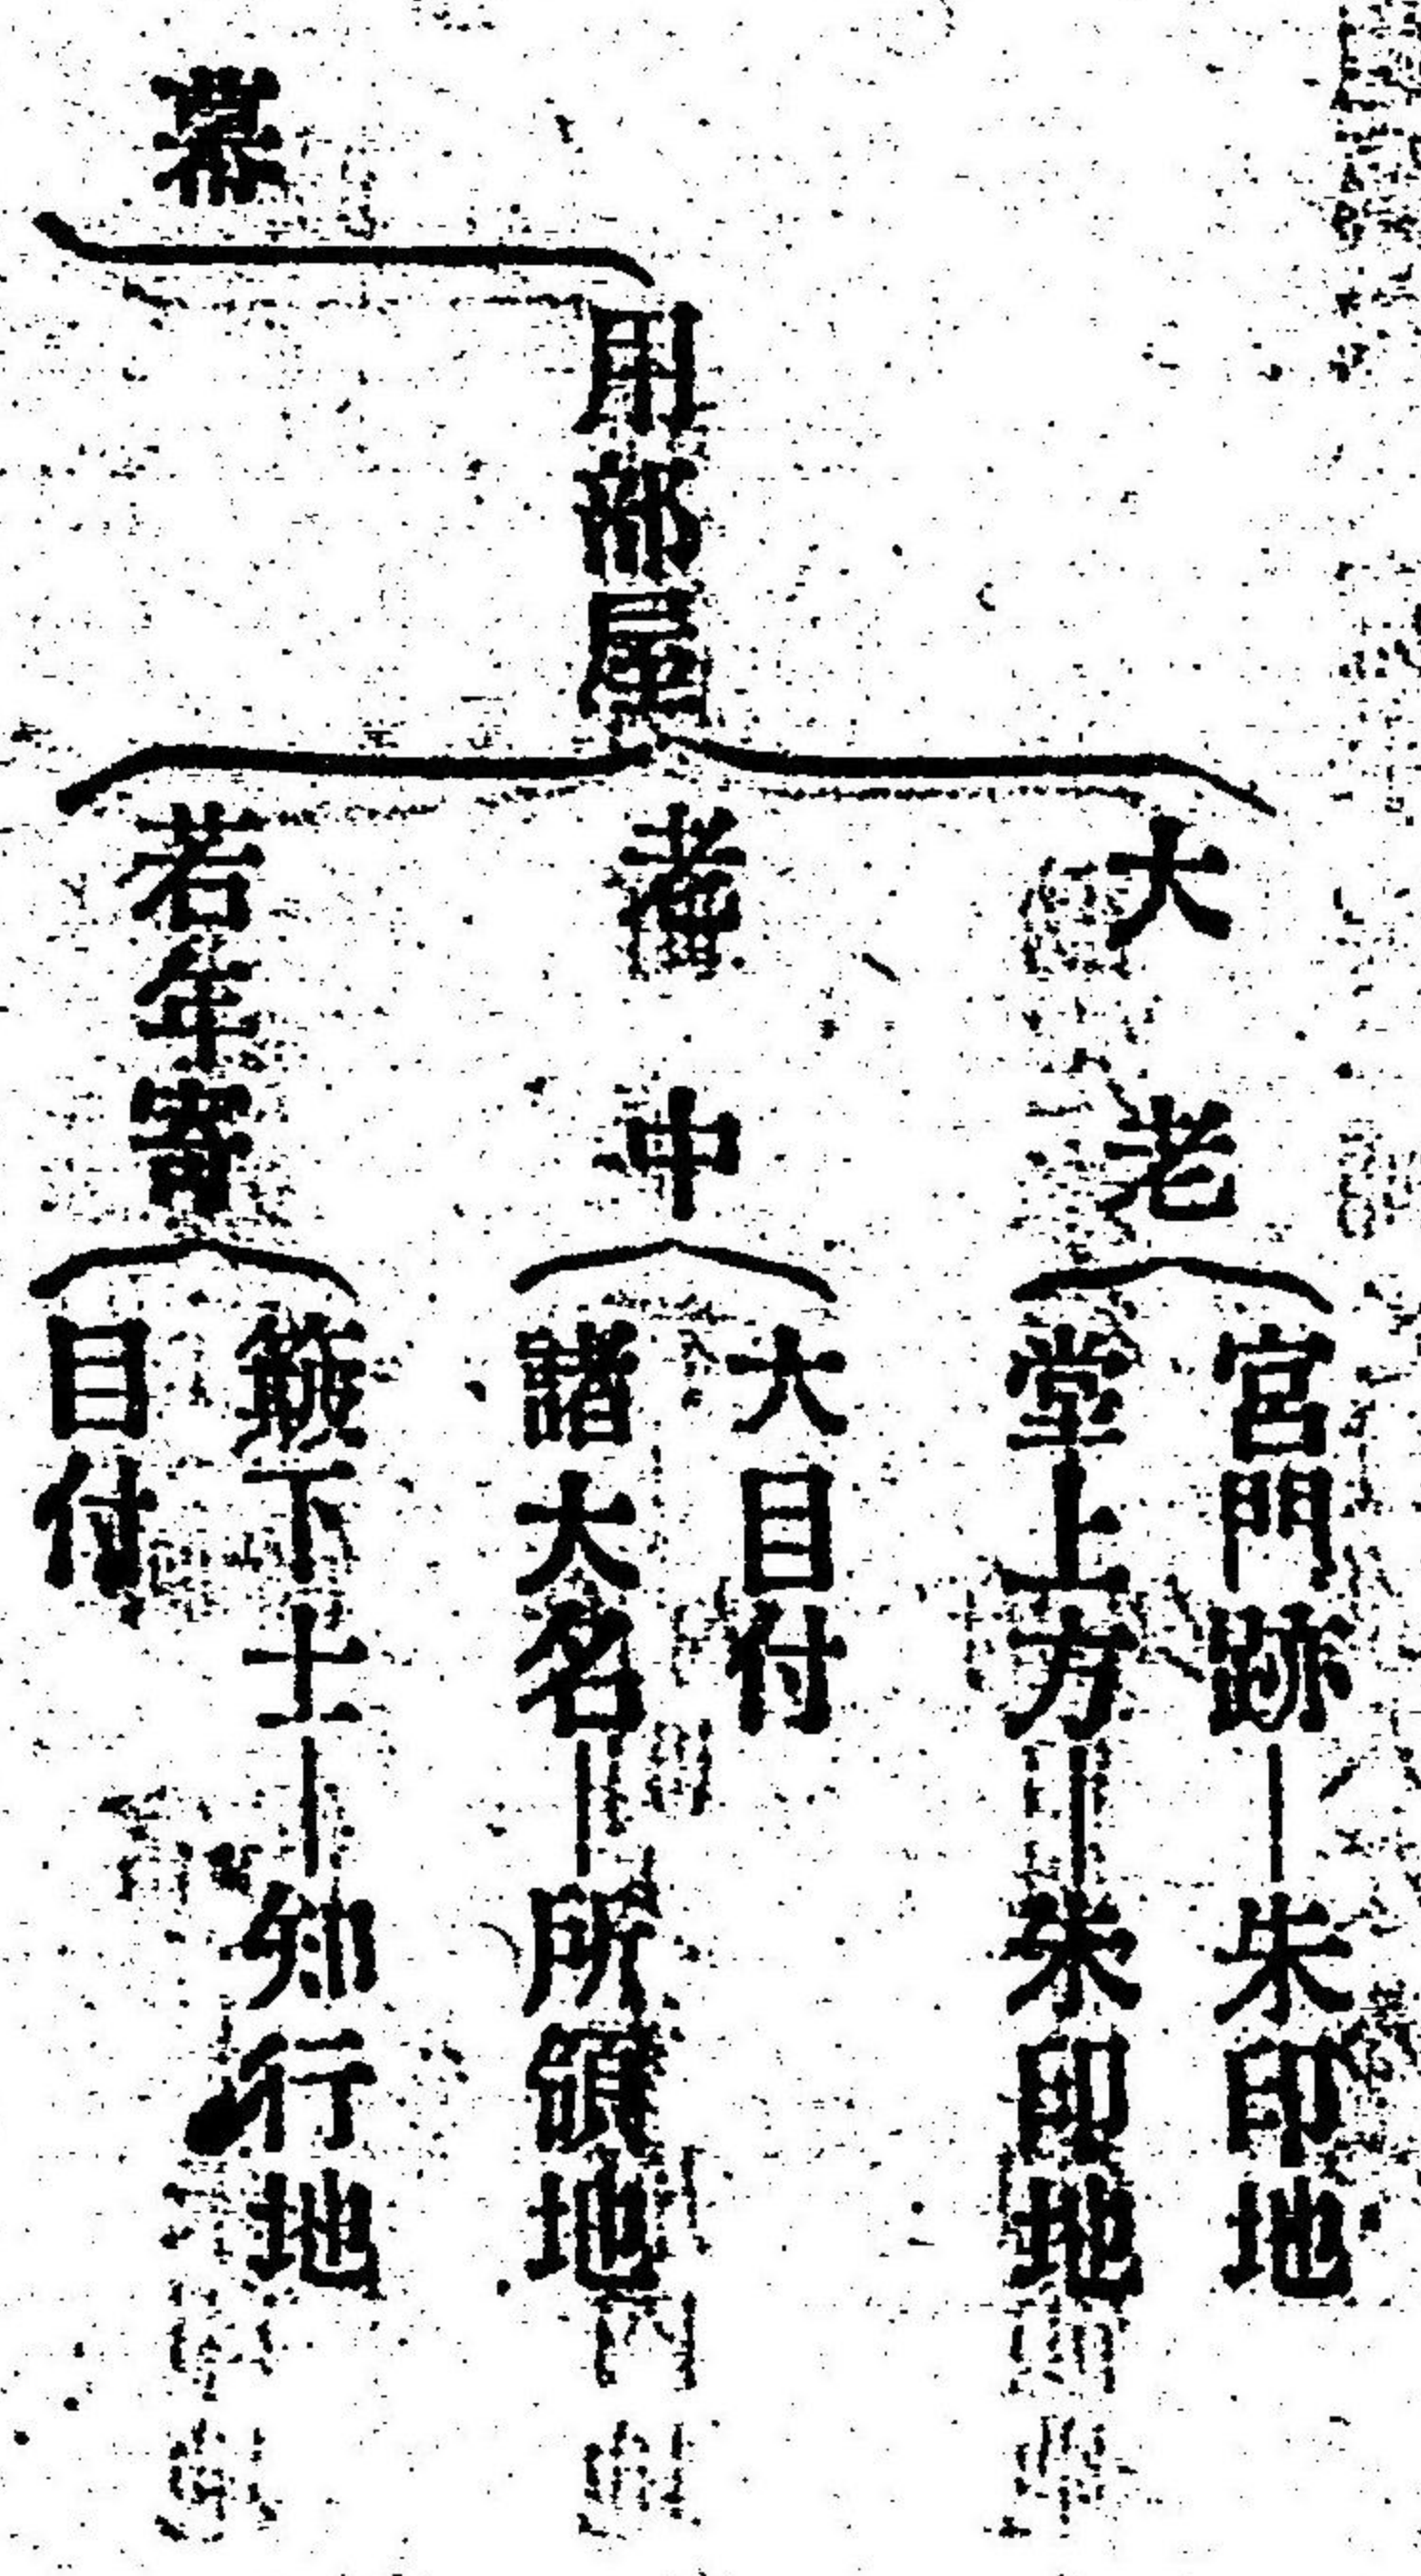 幕
用部屋
大老
宮門跡―朱印地
堂上方―朱印地
老中
大目付
諸大名―所領地
若年寄
簱下士―知行地
目付